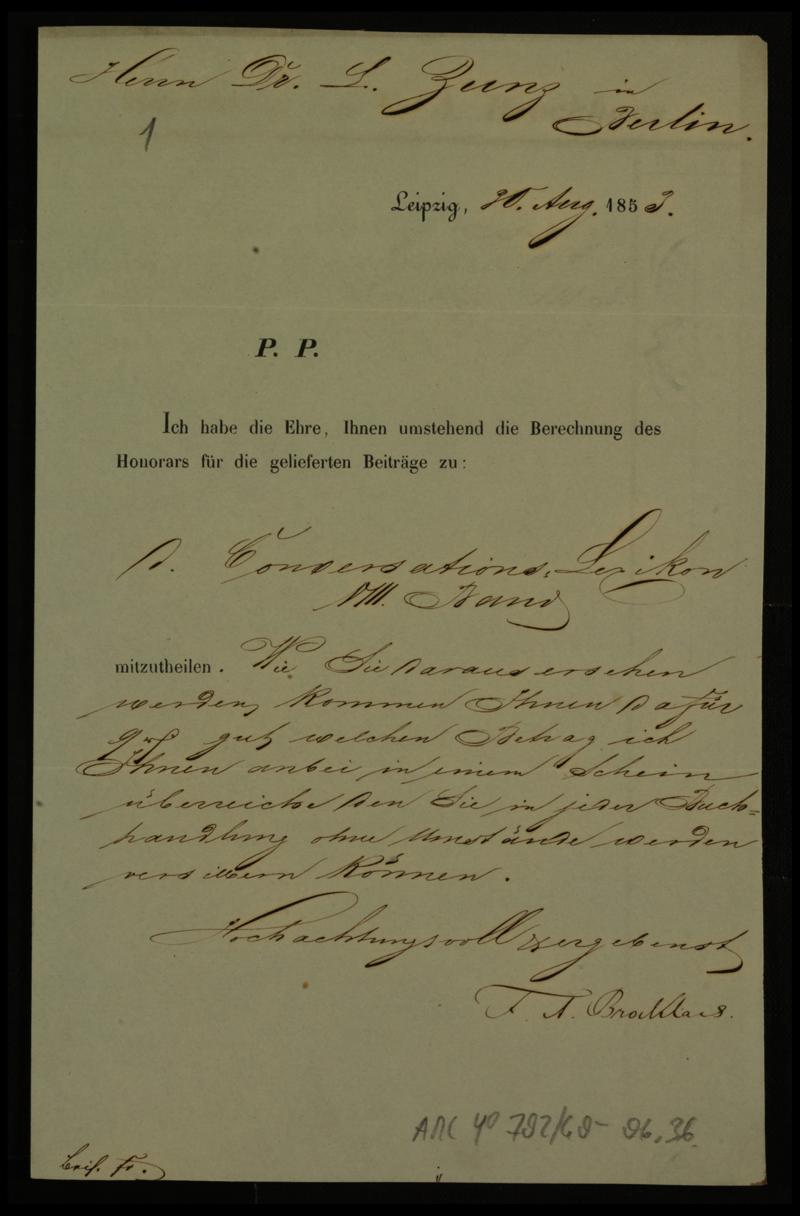 Herrn Dr. L. Zunz in
Berlin.
1
Leipzig, 30. Aug. 1853.
P. P.
Ich habe die Ehre, Ihnen umstehend die Berechnung des
Honorars für die gelieferten Beiträge zu:
d. Conversations-Lexikon
VIII. Band
mitzutheilen. Wie Sie daraus ersehen
werden, kommen Ihnen dafür
gut, welchen Betrag ich
Ihnen anbei in einem Schein
überreiche den Sie in jeder Buch=
handlung ohne Umstände werden
versilbern können.
Hochachtungsvoll ergebenst
F. A. Brockhaus.
ARC 4° 792/